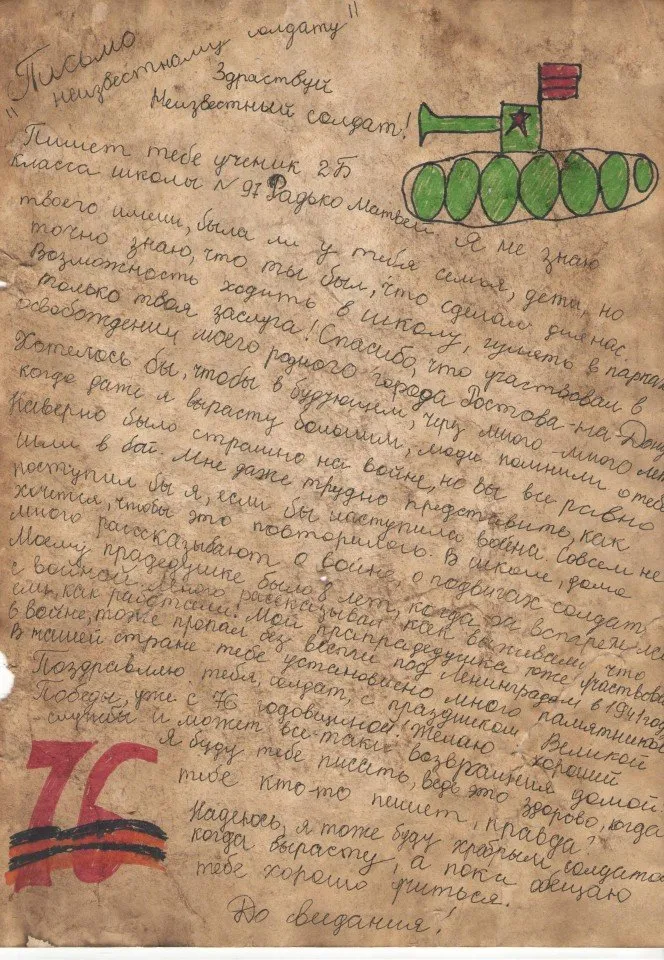 "Письмо
неизвестному солдату"
Здраствуй
Неизвестный солдат!
Пишет тебе ученик 2Б
класса школы N 97 Радько Матвей. Я не знаю
твоего имени, была ли у тебя семья, дети, но
точно знаю, что ты был, что сделал для нас.
Возможность ходить в школу, гулять в парках
только твоя заслуга! Спасибо, что участвовал в
освобождении моего родного города Ростова-на-Дону
Хотелось бы, чтобы в будующем, через много-много лет
когда даже я вырасту большим, люди помнили о тебе
Наверно было страшно на войне, но вы все равно
шли в бой. Мне даже трудно представить, как
поступил бы я, если бы наступила война. Совсем не
хочется, чтобы это повторилось. В школе, дома
много рассказывают о войне, о подвигах солдат,
Моему прадедушке было 8 лет, когда он
с войной. Много рассказывал, как выживали, что
ели, как работали. Мой прапрадедушка тоже участвовал
в войне, тоже пропал без вести под Ленинградом в 1941 году
В нашей стране тебе установлено много памятников
Поздравляю тебя, солдат, с праздником Великой
Победы, уже с 76 годовщиной! Желаю хорошей
службы и может все-таки возвращения домой.
Я буду тебе писать, ведь это здорово, когда
тебе кто-то пишет, правда?
Надеюсь, я тоже буду храбрым солдатом
когда вырасту, а пока обещаю
тебе хорошо учиться.
До свидания!
76